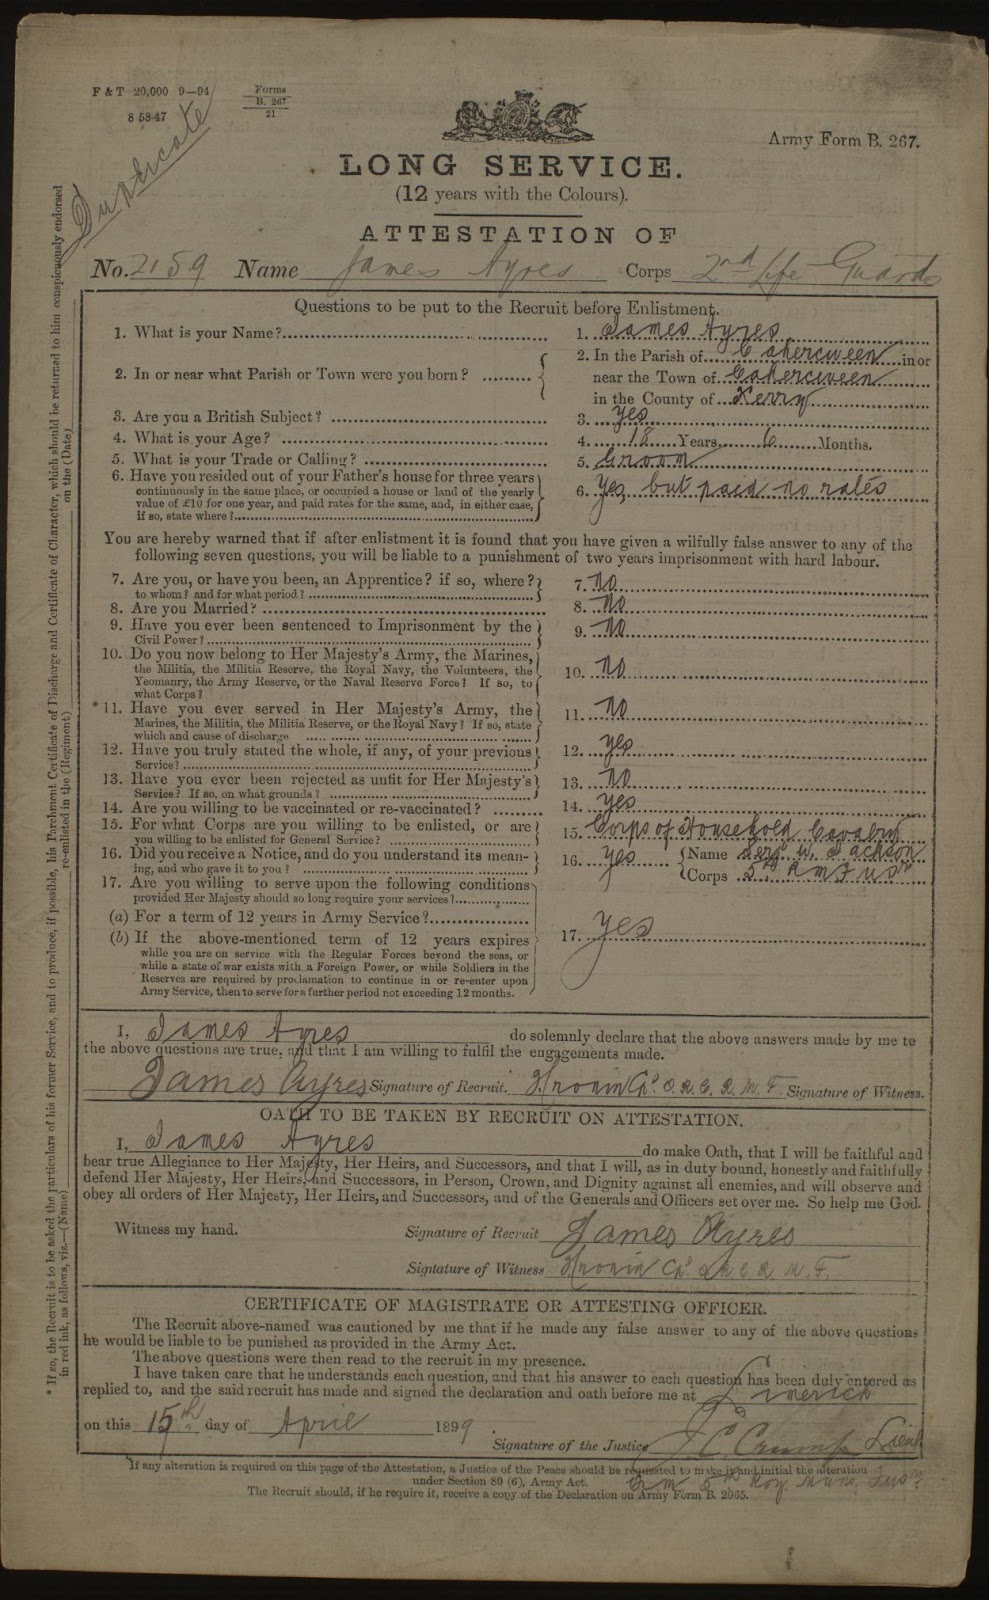 F & T 20,000 9—94
Forms
B. 267
21
8 5847
Duplicate
Army Form B. 267.
LONG SERVICE.
(12 years with the Colours).
ATTESTATION OF
No. 2159 Name James Ayres Corps 2nd Life Guards
Questions to be put to the Recruit before Enlistment.
1. What is your Name? 1. James Ayres
2. In or near what Parish or Town were you born? 2. In the Parish of Caherciveen in or
near the Town of Caherciveen
in the County of Kerry
3. Are you a British Subject? 3. Yes
4. What is your Age? 4. 18 Years 6 Months.
5. What is your Trade or Calling? 5. Groom
6. Have you resided out of your Father's house for three years
continuously in the same place, or occupied a house or land of the yearly
value of £10 for one year, and paid rates for the same, and, in either case,
if so, state where? 6. Yes, but paid no rates
You are hereby warned that if after enlistment it is found that you have given a wilfully false answer to any of the
following seven questions, you will be liable to a punishment of two years imprisonment with hard labour.
7. Are you, or have you been, an Apprentice? if so, where?
to whom? and for what period? 7. No
8. Are you Married? 8. No
9. Have you ever been sentenced to Imprisonment by the
Civil Power? 9. No
10. Do you now belong to Her Majesty's Army, the Marines,
the Militia, the Militia Reserve, the Royal Navy, the Volunteers, the
Yeomanry, the Army Reserve, or the Naval Reserve Force? If so, to
what Corps? 10. No
*11. Have you ever served in Her Majesty's Army, the
Marines, the Militia, the Militia Reserve, or the Royal Navy? If so, state
which and cause of discharge 11. No
12. Have you truly stated the whole, if any, of your previous
Service? 12. Yes
13. Have you ever been rejected as unfit for Her Majesty's
Service? If so, on what grounds? 13. No
14. Are you willing to be vaccinated or re-vaccinated? 14. Yes
15. For what Corps are you willing to be enlisted, or are
you willing to be enlisted for General Service? 15. Corps of Household Cavalry
16. Did you receive a Notice, and do you understand its mean-
ing, and who gave it to you? 16. Yes Name Serg W. Jackson
Corps 5th R M Fusrs
17. Are you willing to serve upon the following conditions
provided Her Majesty should so long require your services?
(a) For a term of 12 years in Army Service?
(b) If the above-mentioned term of 12 years expires
while you are on service with the Regular Forces beyond the seas, or
while a state of war exists with a Foreign Power, or while Soldiers in the
Reserves are required by proclamation to continue in or re-enter upon
Army Service, then to serve for a further period not exceeding 12 months. 17. Yes
I, James Ayres do solemnly declare that the above answers made by me to
the above questions are true, and that I am willing to fulfil the engagements made.
James Ayres Signature of Recruit. Signature of Witness.
OATH TO BE TAKEN BY RECRUIT ON ATTESTATION.
I, James Ayres do make Oath, that I will be faithful and
bear true Allegiance to Her Majesty, Her Heirs, and Successors, and that I will, as in duty bound, honestly and faithfully
defend Her Majesty, Her Heirs, and Successors, in Person, Crown, and Dignity against all enemies, and will observe and
obey all orders of Her Majesty, Her Heirs, and Successors, and of the Generals and Officers set over me. So help me God.
Witness my hand. Signature of Recruit James Ayres
Signature of Witness
CERTIFICATE OF MAGISTRATE OR ATTESTING OFFICER.
The Recruit above-named was cautioned by me that if he made any false answer to any of the above questions
he would be liable to be punished as provided in the Army Act.
The above questions were then read to the recruit in my presence.
I have taken care that he understands each question, and that his answer to each question has been duly entered as
replied to, and the said recruit has made and signed the declaration and oath before me at Limerick
on this 15th day of April 1899.
Signature of the Justice J C Crump Lieut
If any alteration is required on this page of the Attestation, a Justice of the Peace should be requested to make it and initial the alteration
under Section 80 (6), Army Act. 5th Roy Muns. Fusrs
The Recruit should, if he require it, receive a copy of the Declaration on Army Form B. 2065.
* If so, the Recruit is to be asked the particulars of his former Service, and to produce, if possible, his Parchment Certificate of Discharge and Certificate of Character, which should be returned to him conspicuously endorsed
in red ink, as follows, viz.—(Name) re-enlisted in the (Regiment) on the (Date)